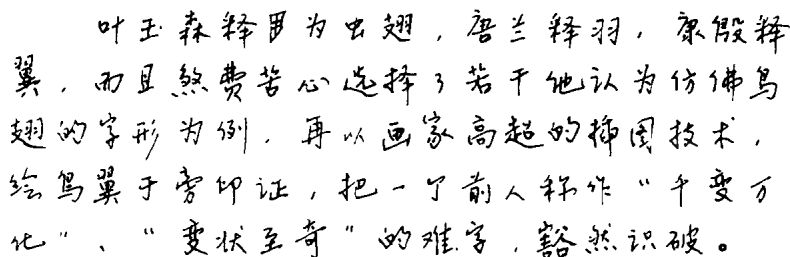 叶玉森释𦥑为虫翅，唐兰释羽，康殷释
翼，而且煞费苦心选择了若干他认为仿佛鸟
翅的字形为例，再以画家高超的插图技术，
绘鸟翼于旁印证，把一个前人称作“千变万
化”、“变状至奇”的难字，豁然识破。